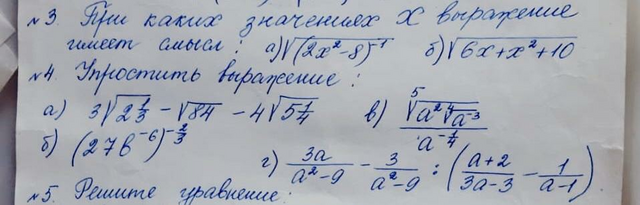 №3. При каких значениях х выражение
имеет смысл: а) √(2x²-8)⁻¹ б) √6x+x²+10
№4. Упростить выражение:
а) 3√2⅓ - √84 - 4√5¼ в) ⁵√a²⁴√a⁻³ / a^-¼
б) (27b⁻⁶)^-⅔
г) 3a/a²-9 - 3/a²-9 : (a+2/3a-3 - 1/a-1)
№5. Решите уравнение: